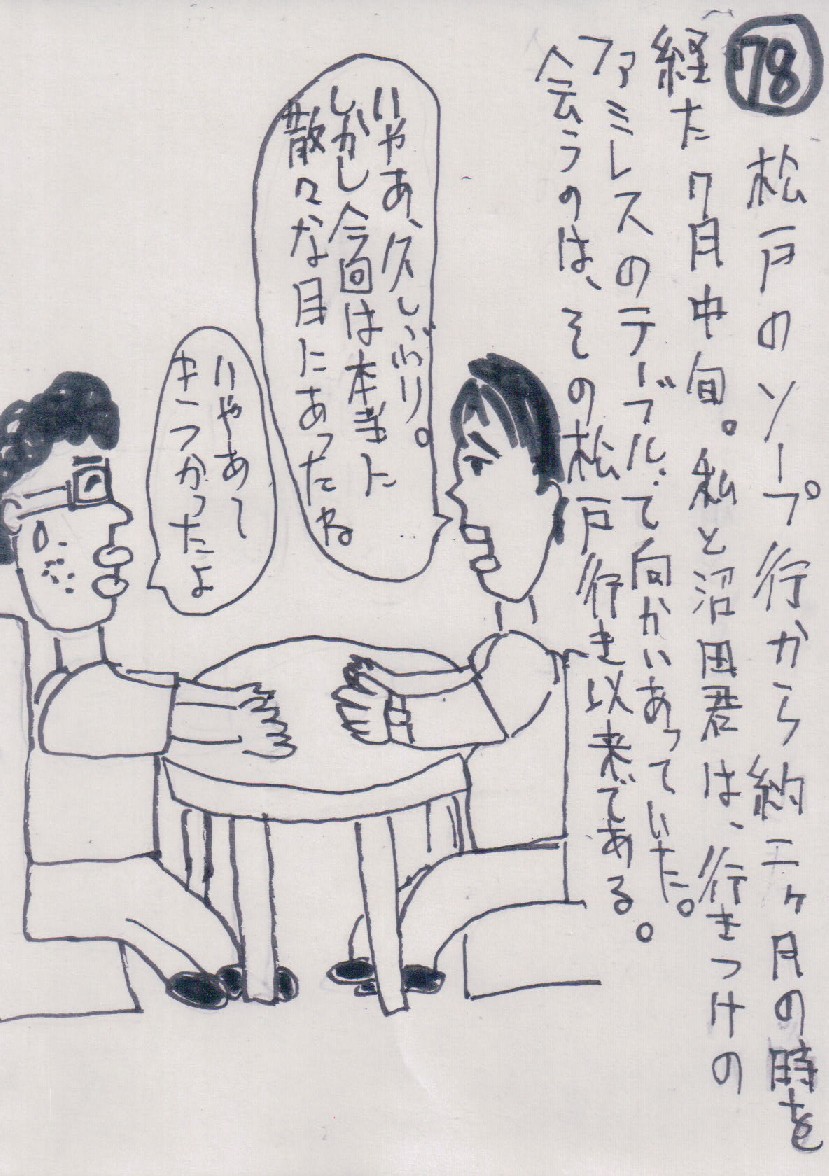 78
松戸のソープ行から約二ヶ月の時を
経た7月中旬。私と沼田君は、行きつけの
ファミレスのテーブルで向かいあっていた。
会うのは、その松戸行き以来である。
いやあ、久しぶり。
しかし今回は本当に
散々な目にあったね
いやあて
きつかったよ